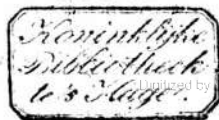 Koninklijke
Bibliotheek
te 's Hage.
Digitized by